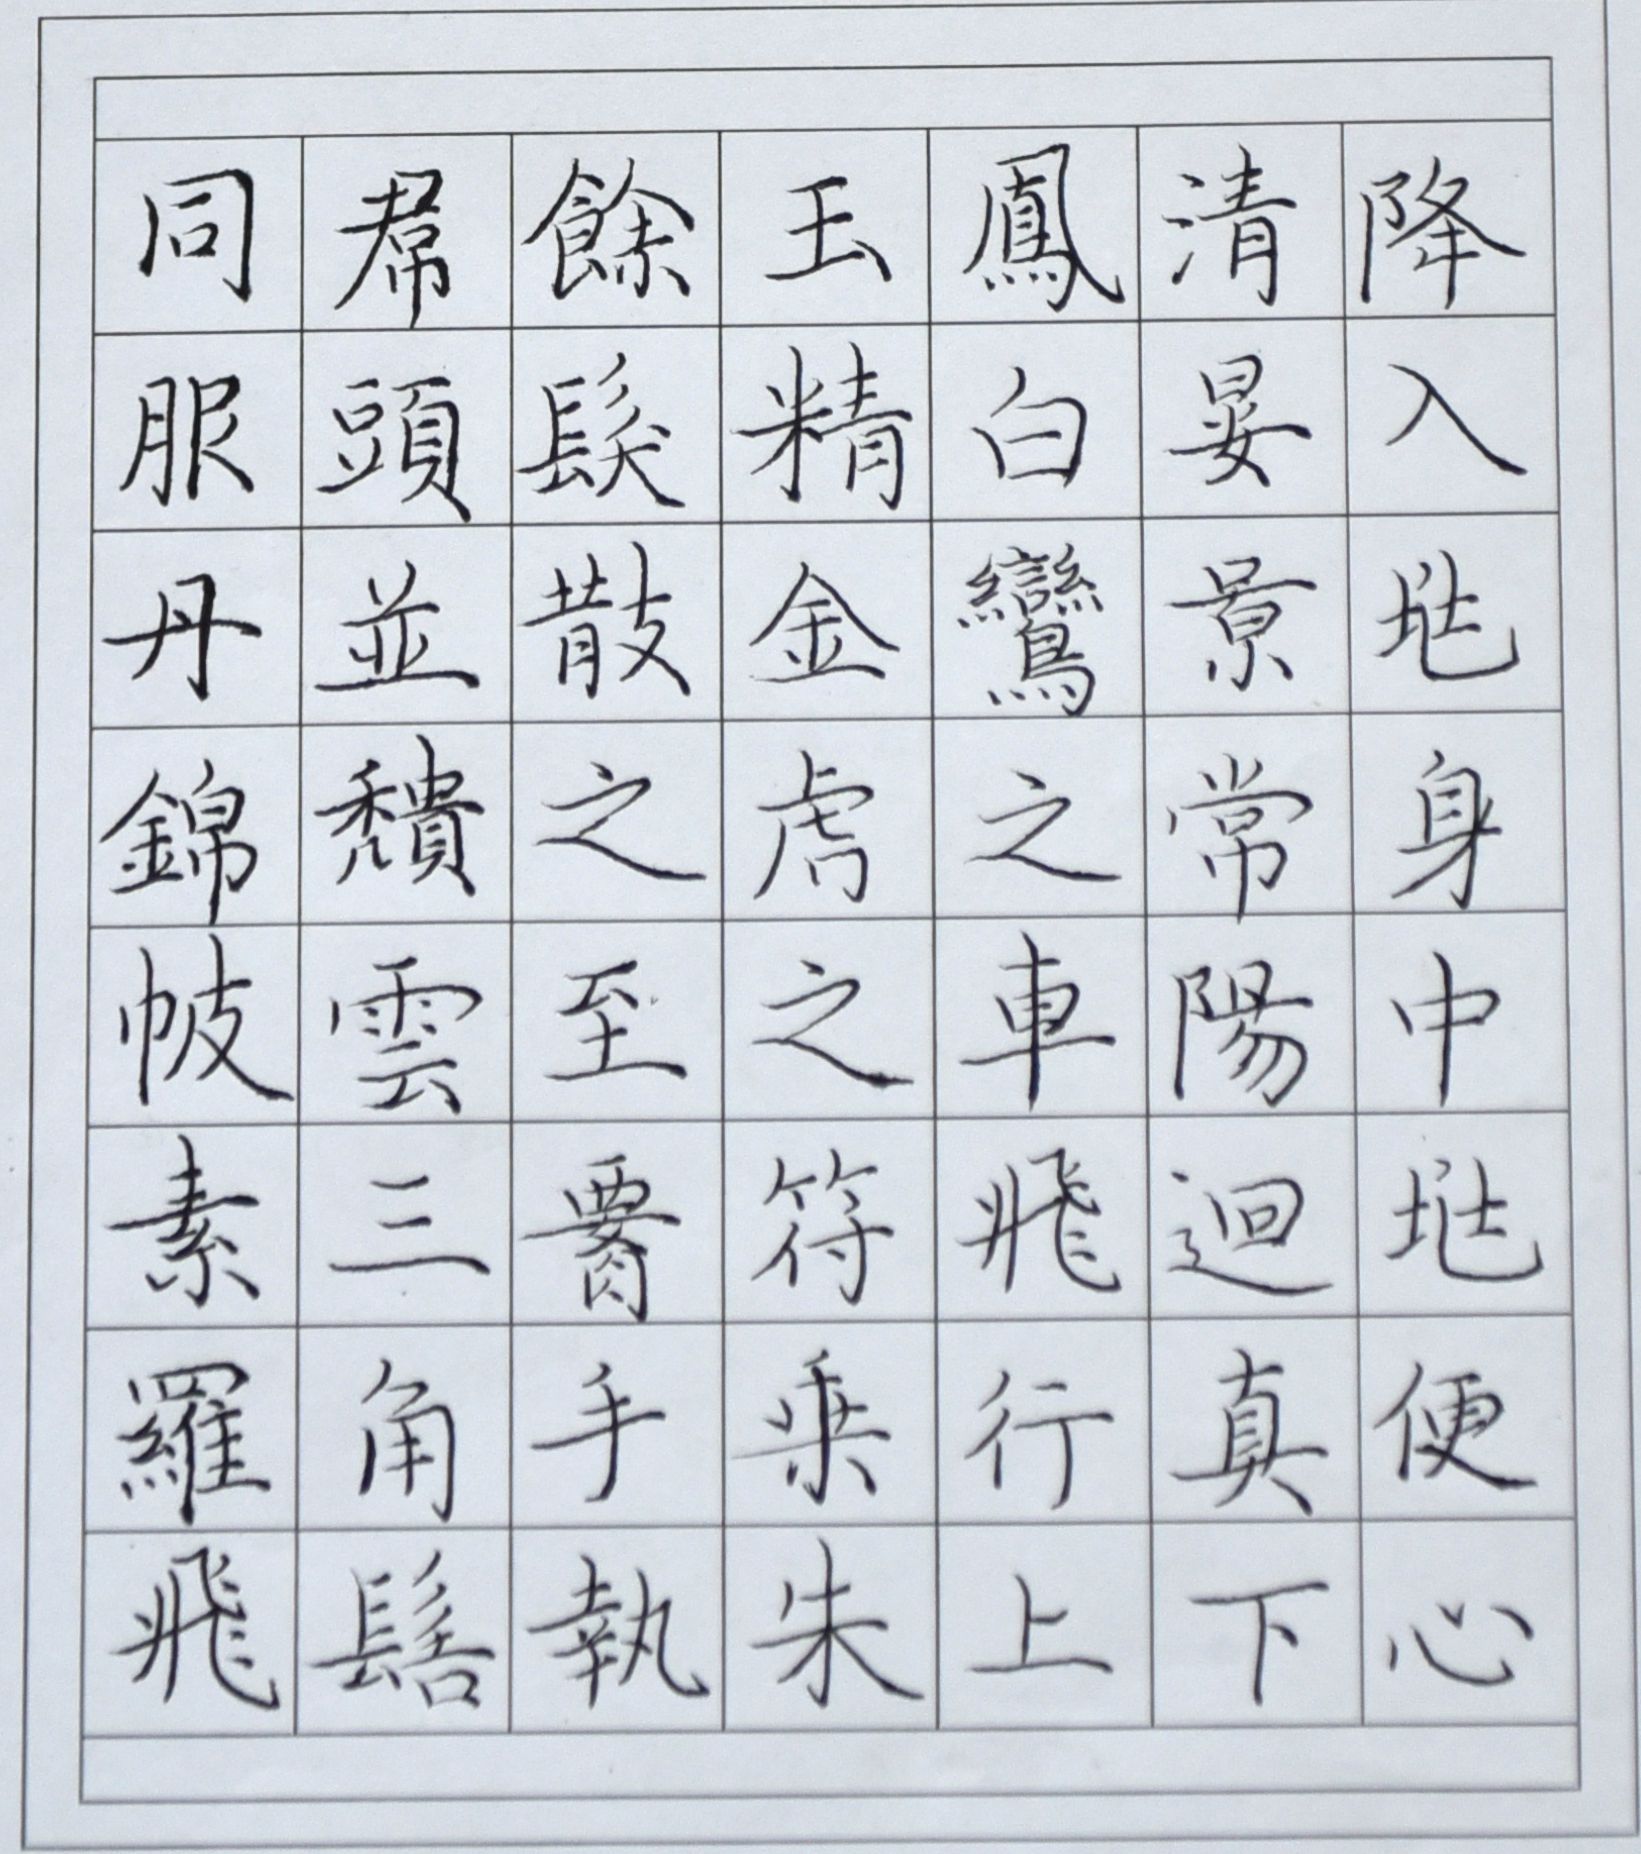 降入兆身中兆便心
清晏景常陽迴真下
鳳白鸞之車飛行上
玉精金虎之符乘朱
餘髮散之至腰手執
帬頭並穨雲三角髻
同服丹錦帔素羅飛